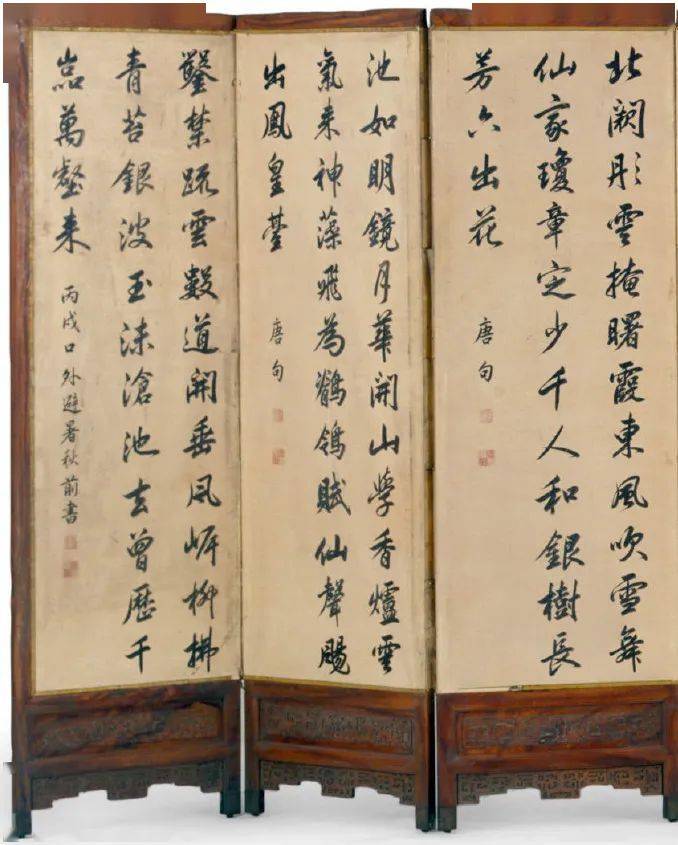 北闕彤雲掩曙霞東風吹雪舞
仙家瓊章定少千人和銀樹長
芳六出花
唐句
池如明鏡月華開山學香爐雲
氣来神藻飛為鶺鴒賦仙聲颺
出鳳皇臺
唐句
鑿禁疏雲數道開垂風岸柳拂
青苔銀波玉沫滄池去曾歷千
喦萬壑来
丙戌口外避暑秋前書